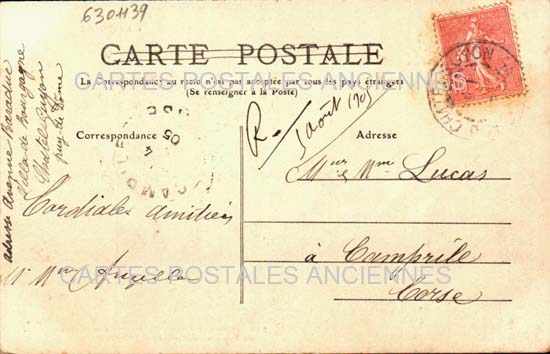 6301139
CARTE POSTALE
La Correspondance au recto n'est pas acceptée par tous les pays étrangers
(Se renseigner à la Poste)
CARTES POSTALES ANCIENNES
Correspondance
Adresse
R.
août 1905
adresse Avenue Baraduc
Villa de Bourgogne
Chatel Guyon
Puy de Dôme
Cordiales amitiés
Mr & Mme Lucas
à Camprile
Corse
CARTES POSTALES ANCIENNES